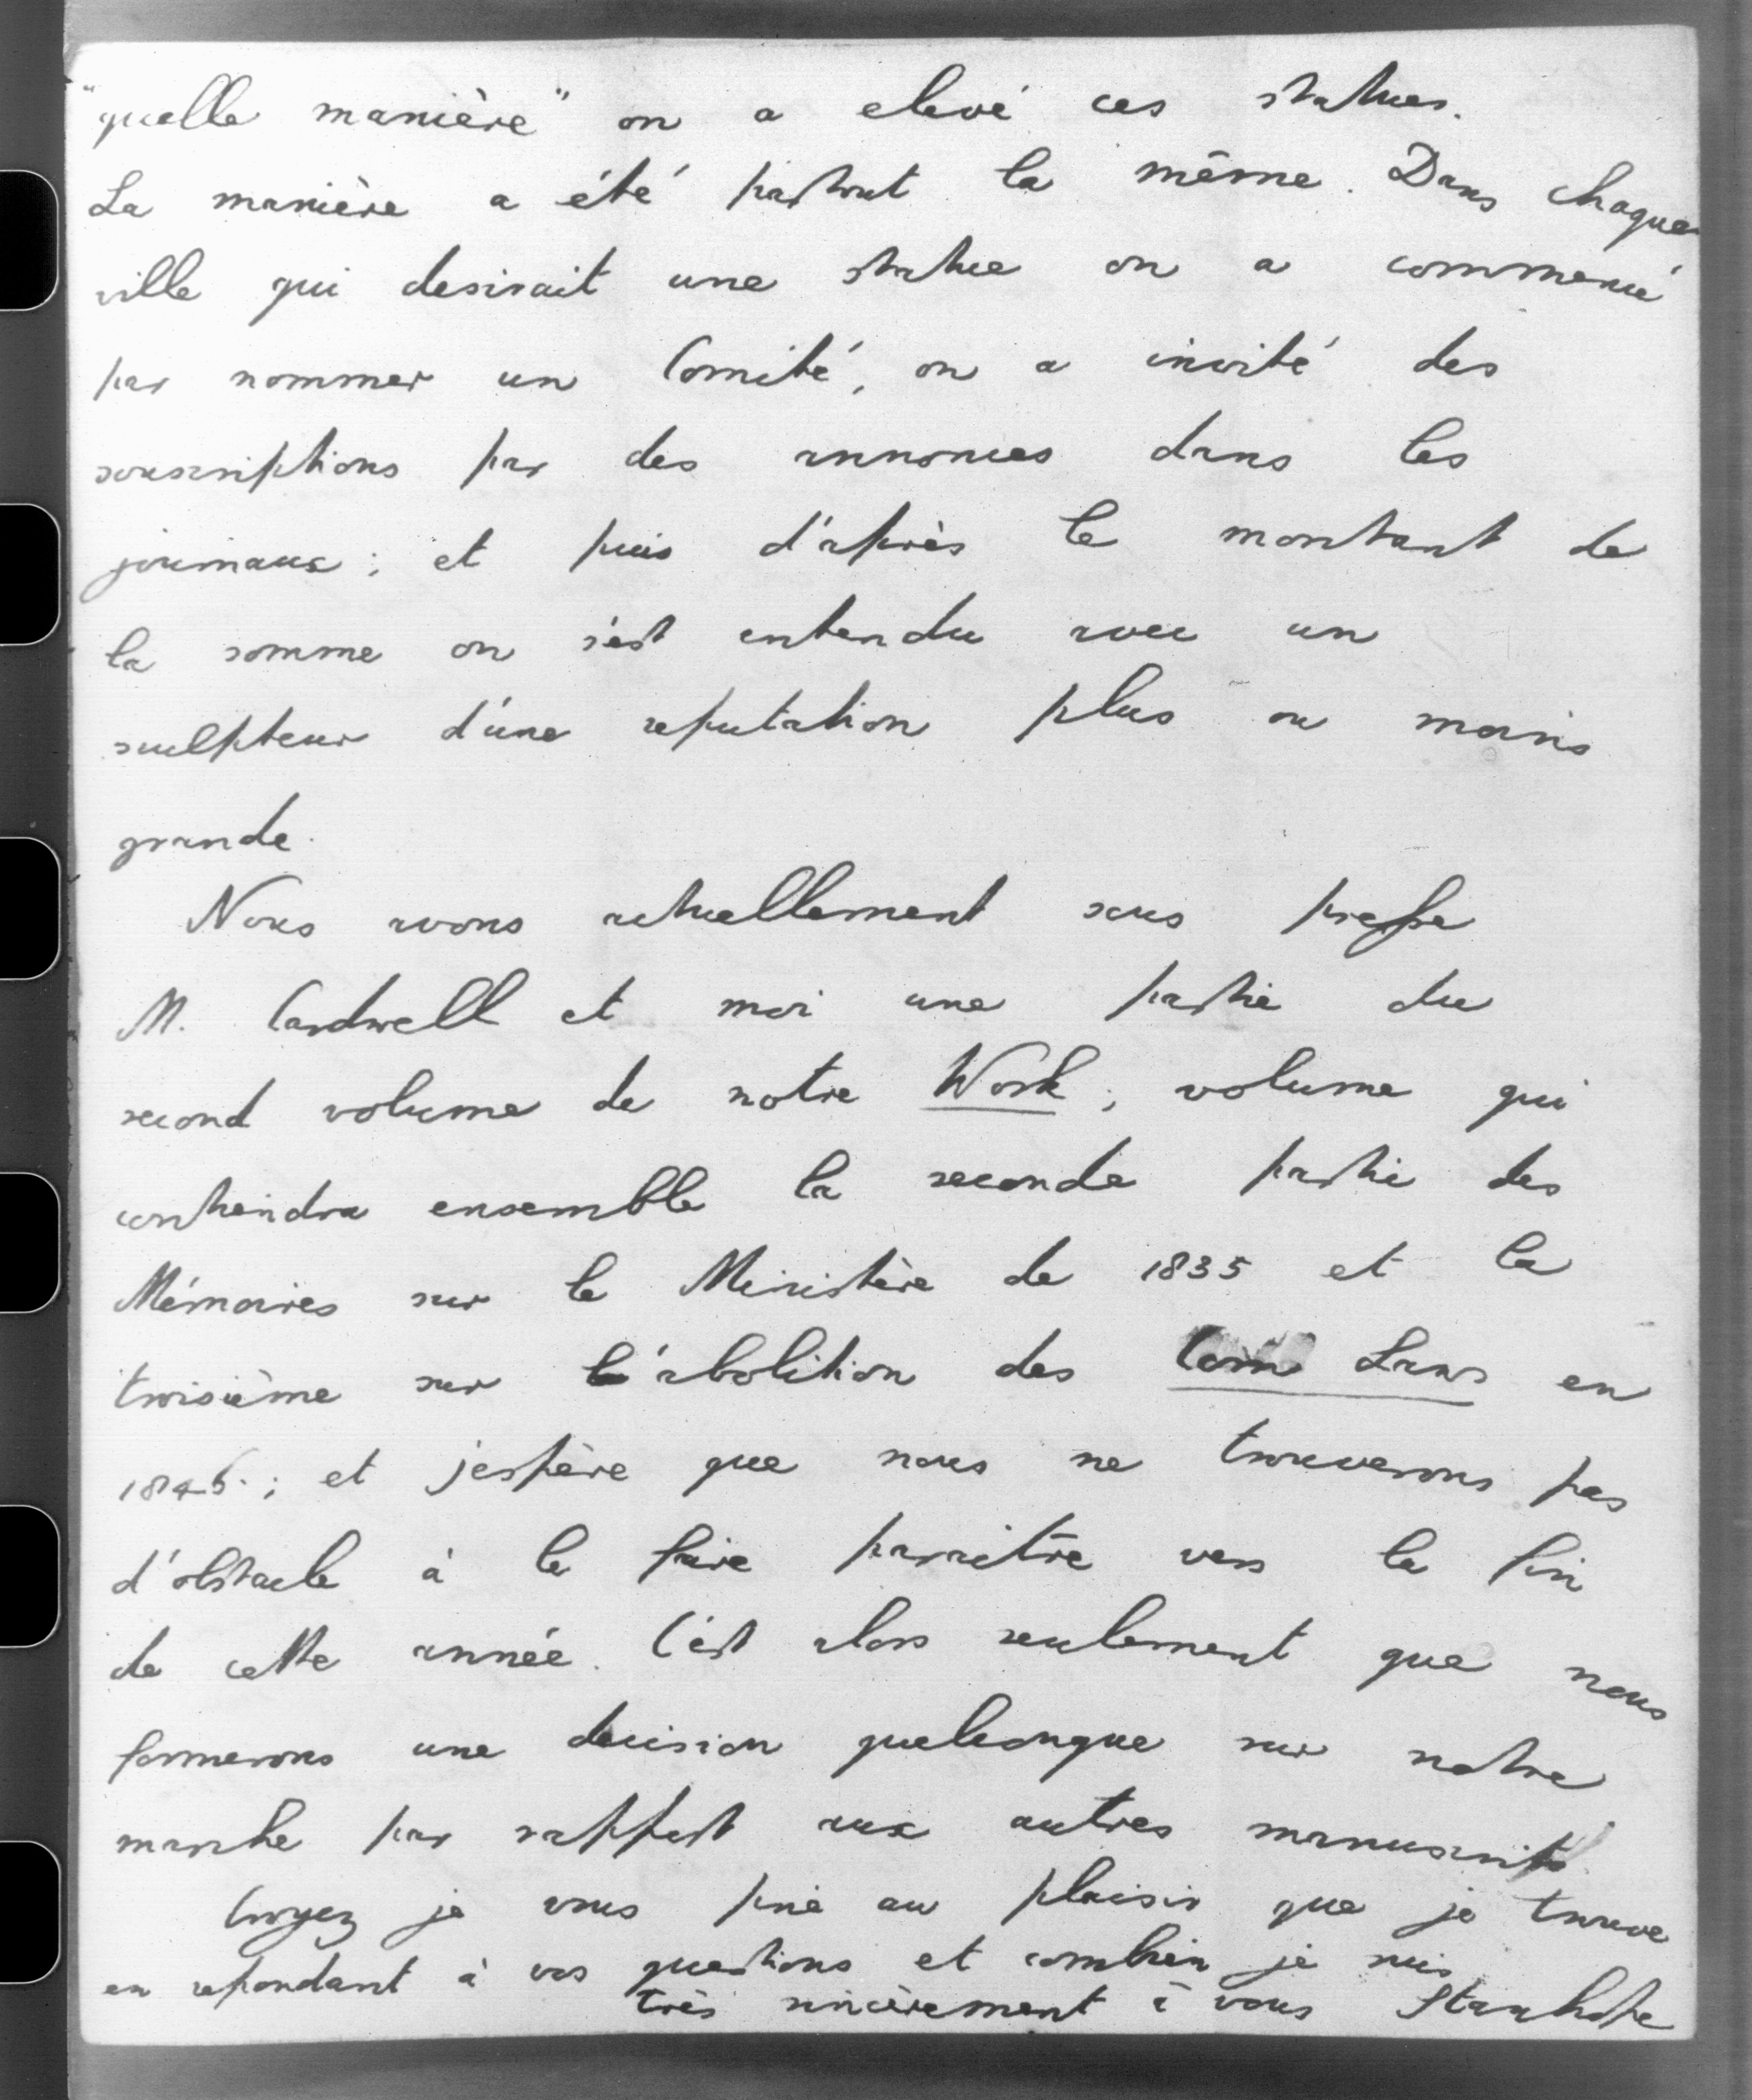 "quelle manière" on a elevé ces statues.
La manière a été partout la même. Dans chaque
ville qui desirait une statue on a commencé
par nommer un Comité, on a invité des
souscriptions par des annonces dans les
journaux ; et puis d'après le montant de
la somme on s'est entendu avec un
sculpteur d'une reputation plus ou moins
grande.
Nous avons actuellement sous presse
M. Cardwell et moi une partie du
second volume de notre Work ; volume qui
contiendra ensemble la seconde partie des
Mémoires sur le Ministère de 1835 et la
troisième sur l'abolition des Corn Laws en
1846. ; et j'espère que nous ne trouverons pas
d'obstacle à le faire paraître vers la fin
de cette année. C'est alors seulement que nous
formerons une decision quelconque sur notre
marche par rapport aux autres manuscrits
Croyez je vous prie au plaisir que je trouve
en repondant à vos questions et combien je suis
très sincèrement à vous Stanhope